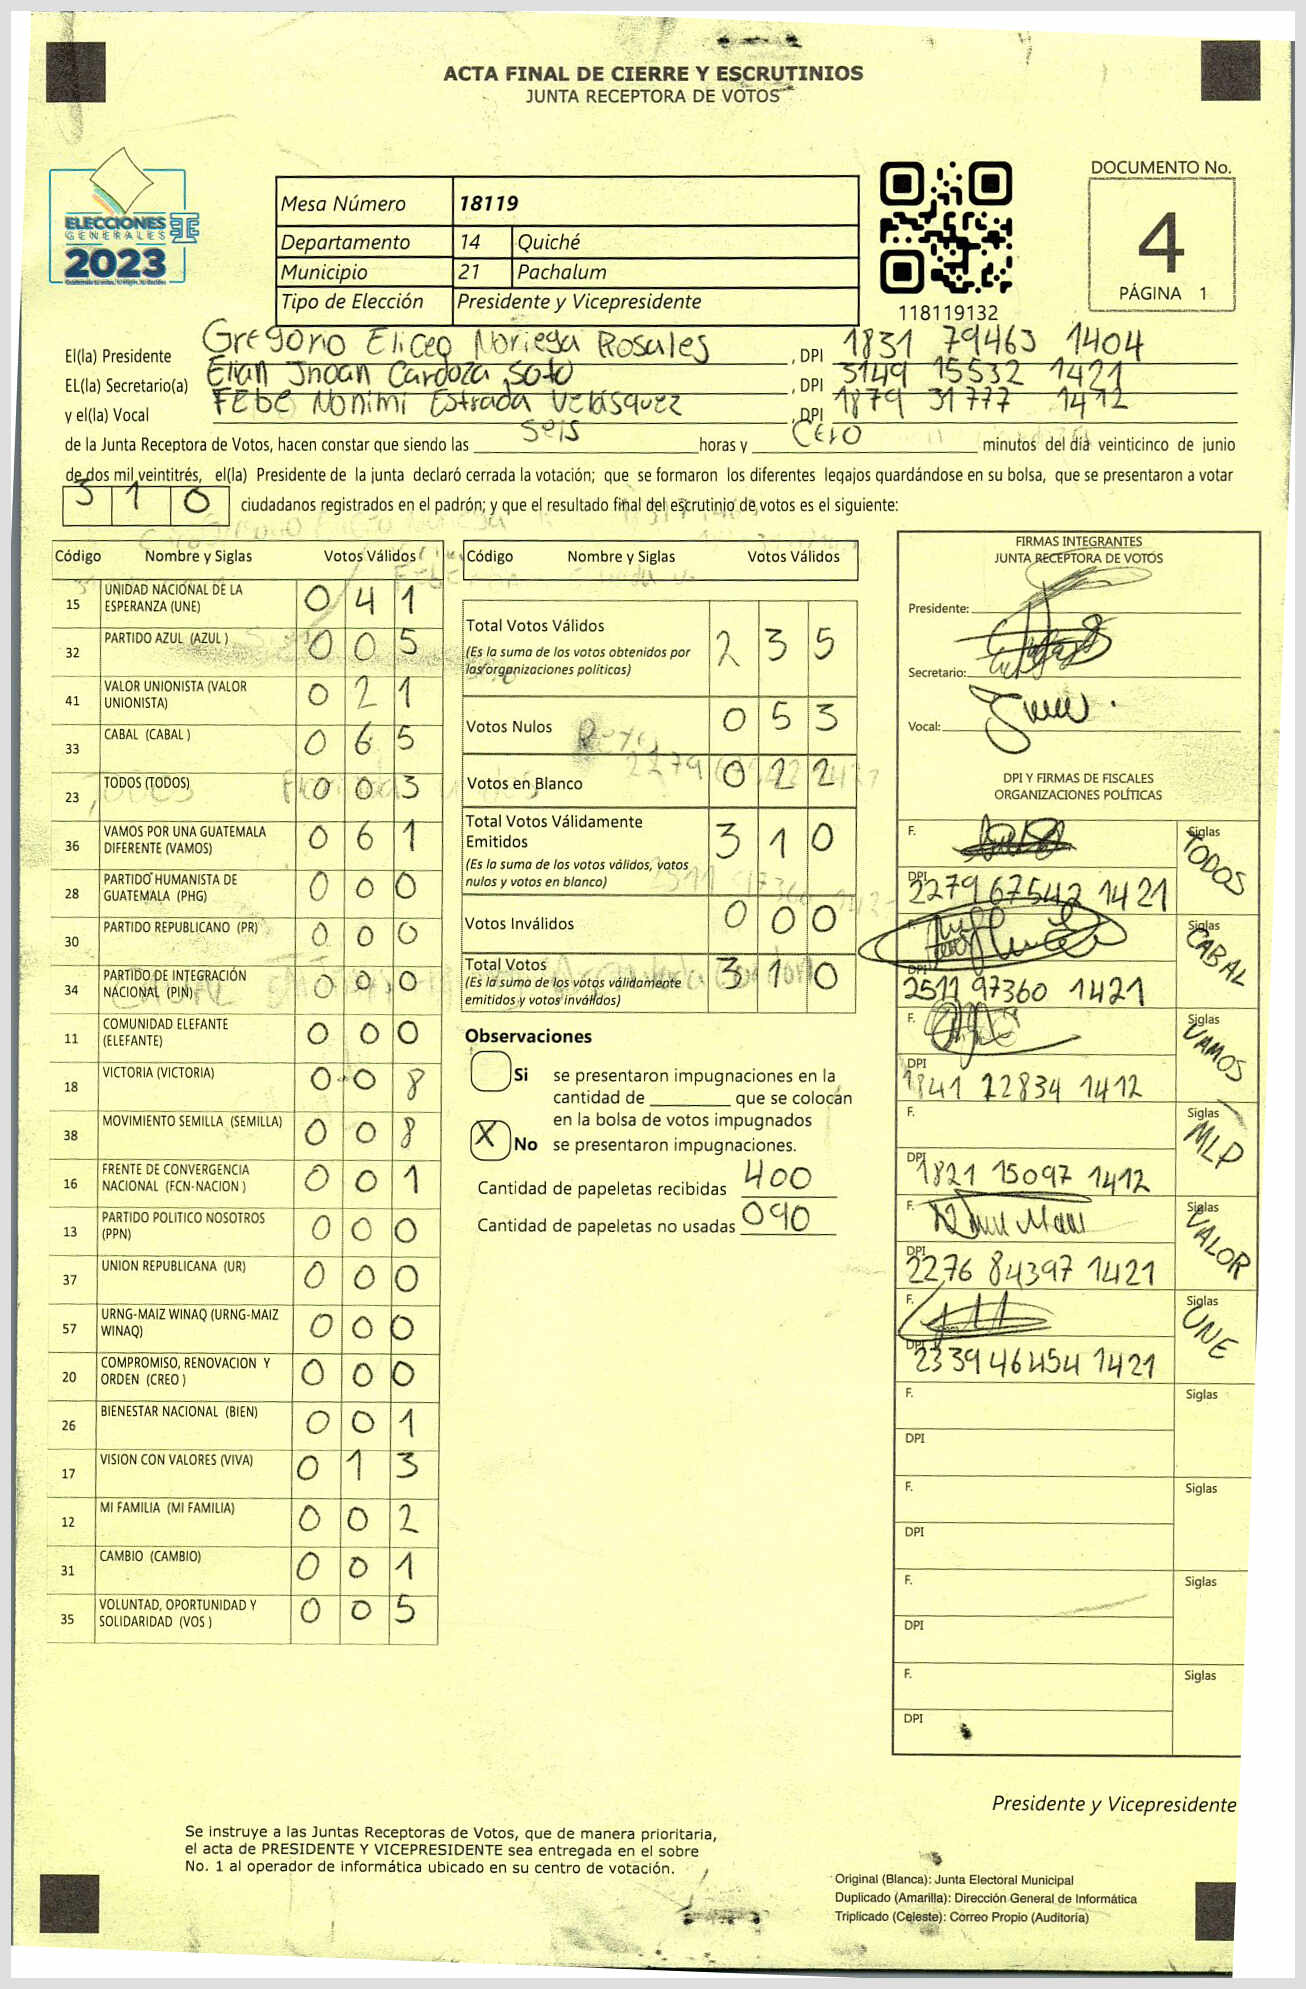 ACTA FINAL DE CIERRE Y ESCRUTINIOS
JUNTA RECEPTORA DE VOTOS
ELECCIONES
GENERALES
2023
Mesa Número 18119
Departamento 14 Quiché
Municipio 21 Pachalum
Tipo de Elección Presidente y Vicepresidente
118119132
DOCUMENTO No.
4
PÁGINA 1
El(la) Presidente Gregorio Eliceo Noriega Rosales , DPI 1831 79463 1404
EL(la) Secretario(a) Elian Jhoan Cardoza Soto , DPI 3149 15532 1421
y el(la) Vocal FEbE Nohimi Estrada Velásquez , DPI 1879 31777 1412
de la Junta Receptora de Votos, hacen constar que siendo las seis horas y cero minutos del día veinticinco de junio
de dos mil veintitrés, el(la) Presidente de la junta declaró cerrada la votación; que se formaron los diferentes legajos guardándose en su bolsa, que se presentaron a votar
310 ciudadanos registrados en el padrón; y que el resultado final del escrutinio de votos es el siguiente:
Código Nombre y Siglas Votos Válidos
15 UNIDAD NACIONAL DE LA ESPERANZA (UNE) 0 4 1
32 PARTIDO AZUL (AZUL ) 0 0 5
41 VALOR UNIONISTA (VALOR UNIONISTA) 0 2 1
33 CABAL (CABAL ) 0 6 5
23 TODOS (TODOS) 0 0 3
36 VAMOS POR UNA GUATEMALA DIFERENTE (VAMOS) 0 6 1
28 PARTIDO HUMANISTA DE GUATEMALA (PHG) 0 0 0
30 PARTIDO REPUBLICANO (PR) 0 0 0
34 PARTIDO DE INTEGRACIÓN NACIONAL (PIN) 0 0 0
11 COMUNIDAD ELEFANTE (ELEFANTE) 0 0 0
18 VICTORIA (VICTORIA) 0 0 8
38 MOVIMIENTO SEMILLA (SEMILLA) 0 0 8
16 FRENTE DE CONVERGENCIA NACIONAL (FCN-NACION ) 0 0 1
13 PARTIDO POLITICO NOSOTROS (PPN) 0 0 0
37 UNION REPUBLICANA (UR) 0 0 0
57 URNG-MAIZ WINAQ (URNG-MAIZ WINAQ) 0 0 0
20 COMPROMISO, RENOVACION Y ORDEN (CREO ) 0 0 0
26 BIENESTAR NACIONAL (BIEN) 0 0 1
17 VISION CON VALORES (VIVA) 0 1 3
12 MI FAMILIA (MI FAMILIA) 0 0 2
31 CAMBIO (CAMBIO) 0 0 1
35 VOLUNTAD, OPORTUNIDAD Y SOLIDARIDAD (VOS ) 0 0 5
Código Nombre y Siglas Votos Válidos
Total Votos Válidos 2 3 5
(Es la suma de los votos obtenidos por
las organizaciones políticas)
Votos Nulos 0 5 3
Votos en Blanco 0 2 2
Total Votos Válidamente
Emitidos 3 1 0
(Es la suma de los votos válidos, votos
nulos y votos en blanco)
Votos Inválidos 0 0 0
Total Votos 3 1 0
(Es la suma de los votos válidamente
emitidos y votos inválidos)
Observaciones
Si se presentaron impugnaciones en la
cantidad de ________ que se colocan
en la bolsa de votos impugnados
X No se presentaron impugnaciones.
Cantidad de papeletas recibidas 400
Cantidad de papeletas no usadas 090
FIRMAS INTEGRANTES
JUNTA RECEPTORA DE VOTOS
Presidente:
Secretario:
Vocal:
DPI Y FIRMAS DE FISCALES
ORGANIZACIONES POLÍTICAS
F. Siglas TODOS
DPI 2279 67542 1421
F. Siglas CABAL
DPI 2511 97360 1421
F. Siglas VAMOS
DPI 1841 22834 1412
F. Siglas MLP
DPI 1821 15097 1412
F. Siglas VALOR
DPI 2276 84397 1421
F. Siglas UNE
DPI 2339 46454 1421
F. Siglas
DPI
F. Siglas
DPI
F. Siglas
DPI
F. Siglas
DPI
Presidente y Vicepresidente
Se instruye a las Juntas Receptoras de Votos, que de manera prioritaria,
el acta de PRESIDENTE Y VICEPRESIDENTE sea entregada en el sobre
No. 1 al operador de informática ubicado en su centro de votación.
Original (Blanca): Junta Electoral Municipal
Duplicado (Amarilla): Dirección General de Informática
Triplicado (Celeste): Correo Propio (Auditoría)